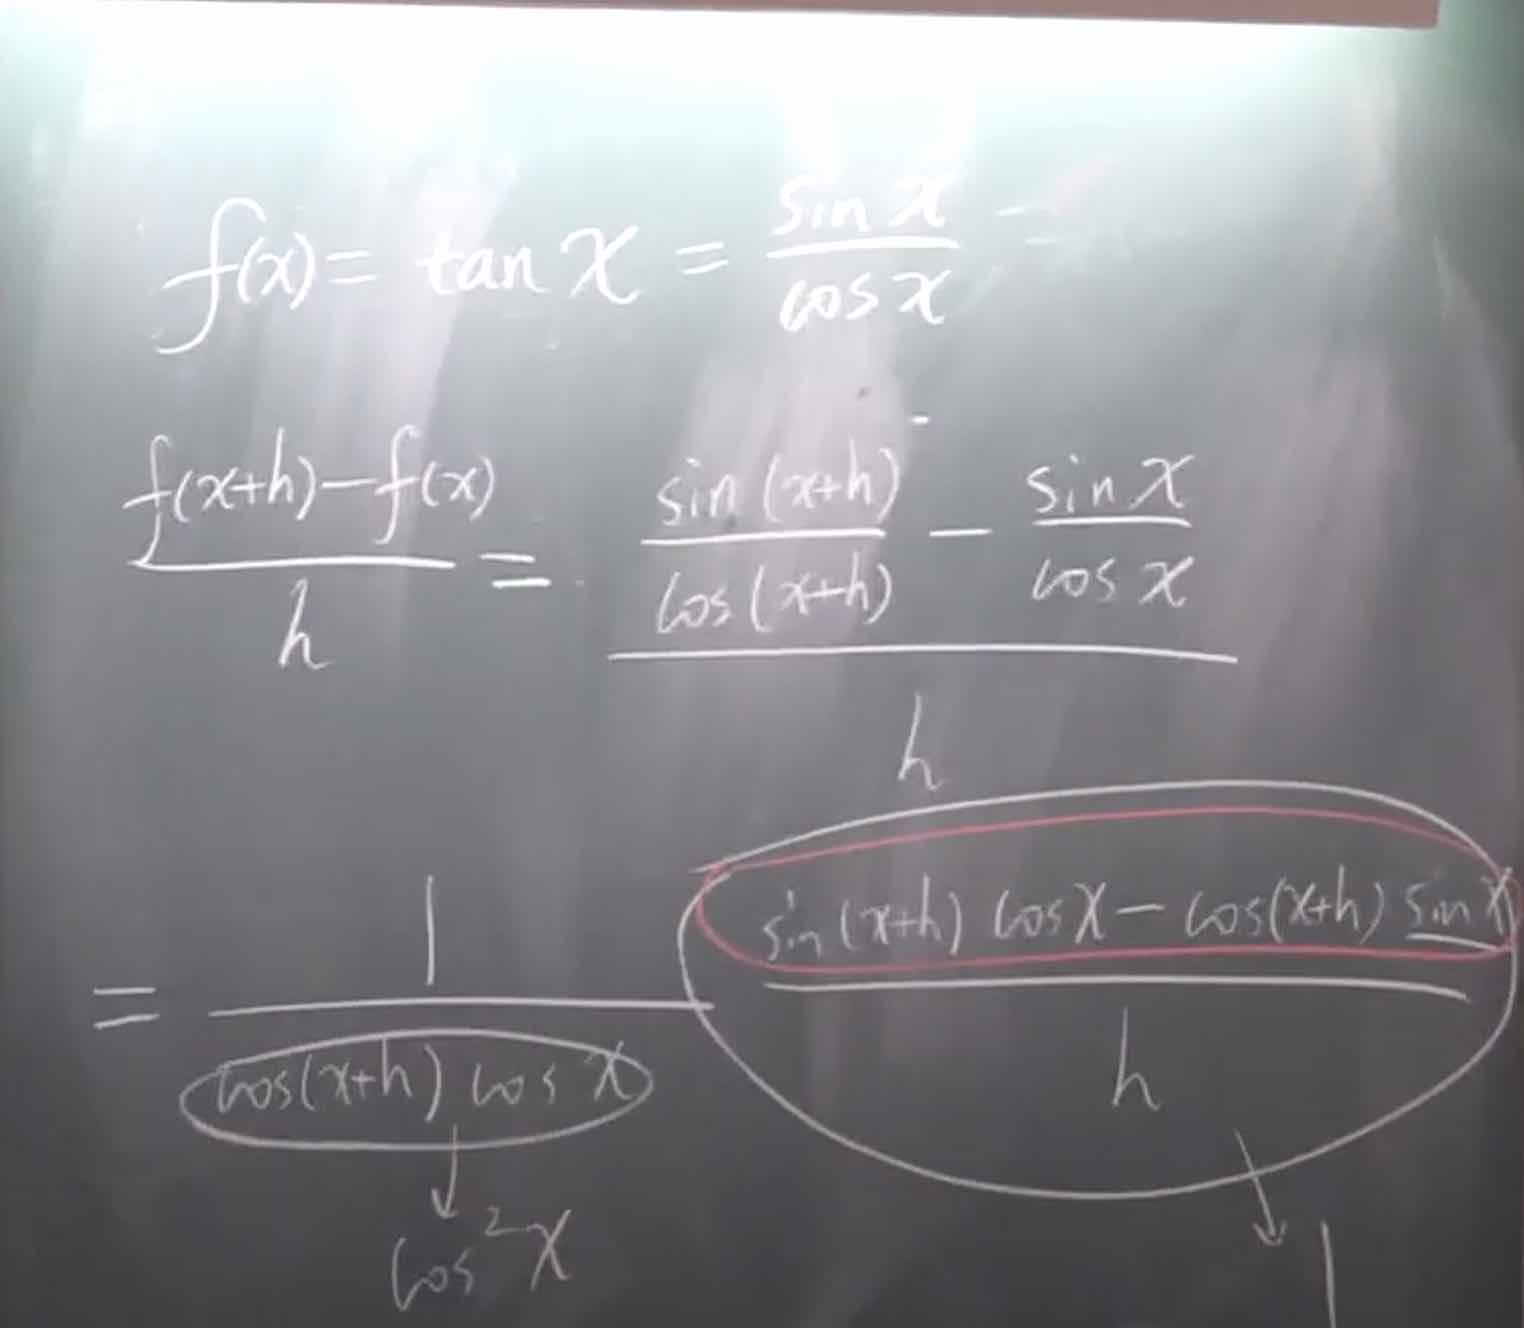 f(x) = tan x = sin x / cos x
f(x+h) - f(x) / h = sin (x+h) / cos (x+h) - sin x / cos x / h
= 1 / cos(x+h) cos x   sin (x+h) cos x - cos(x+h) sin x / h
↓ cos² x   ↘ 1